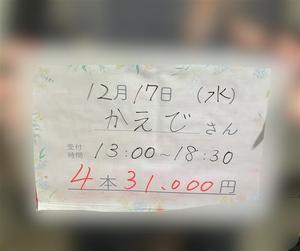 12月17日 (水)
かえで さん
受付時間 13:00~18:30
4本 31.000円